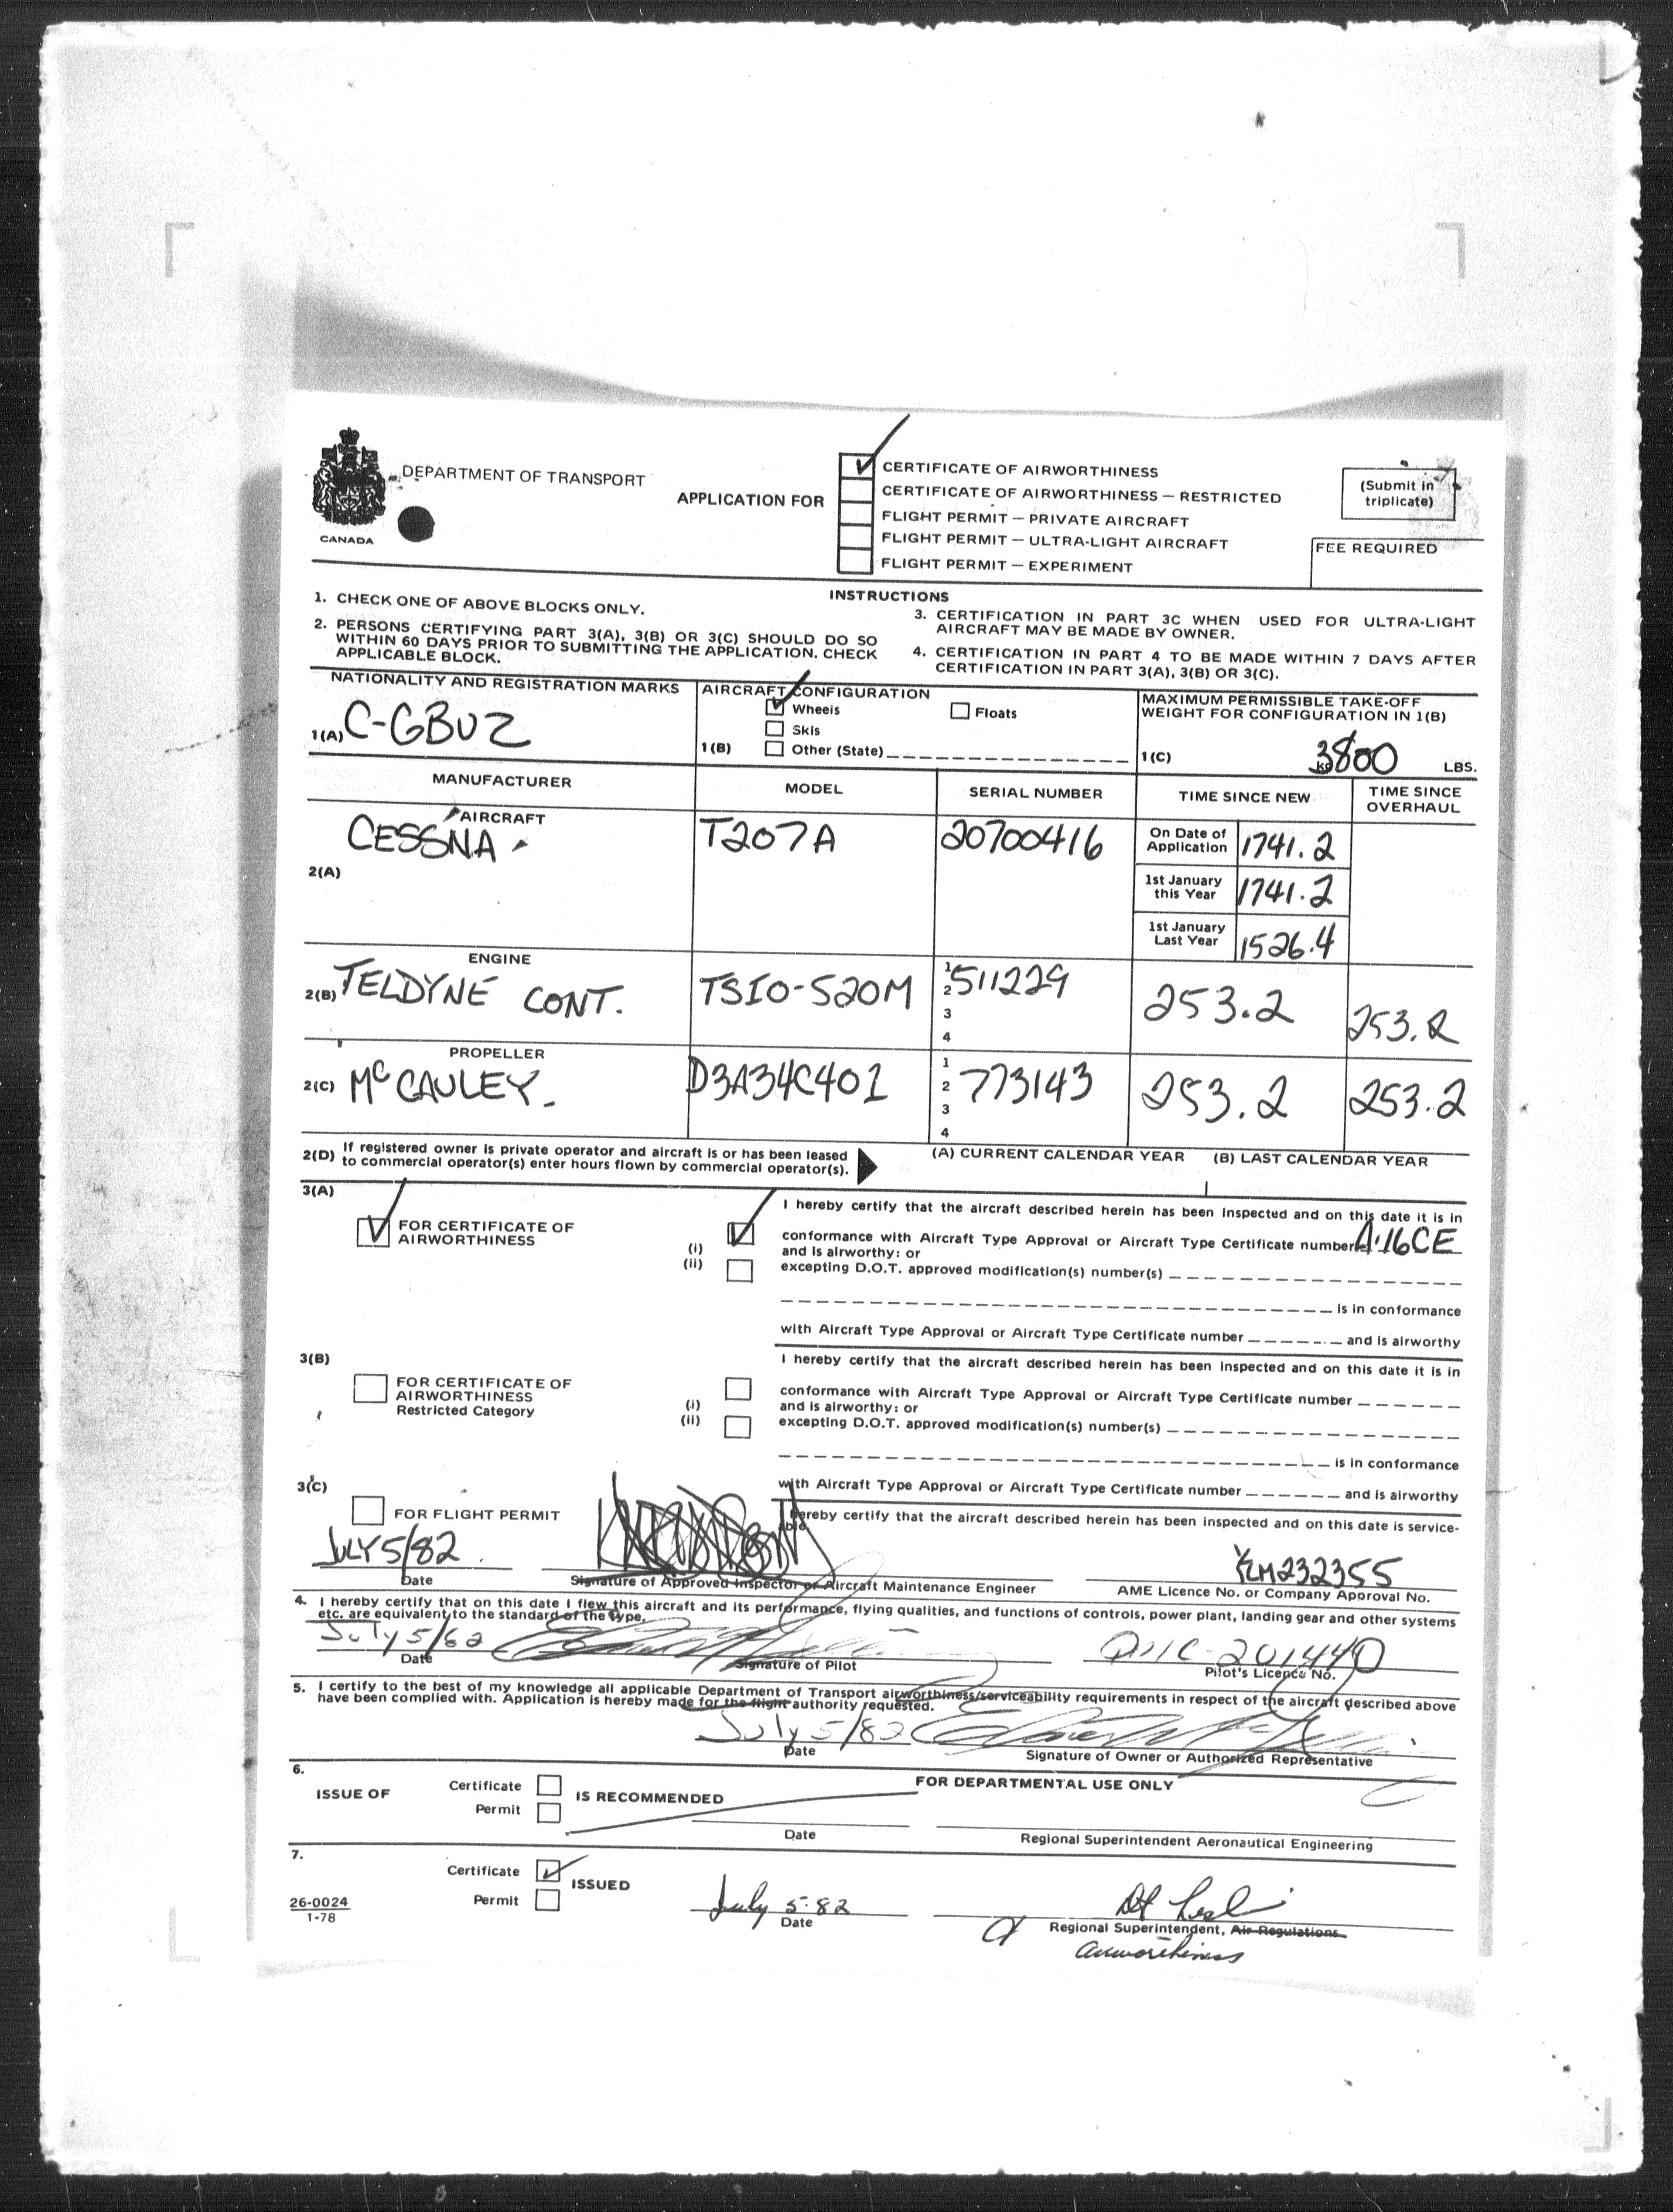 DEPARTMENT OF TRANSPORT
CANADA
APPLICATION FOR
CERTIFICATE OF AIRWORTHINESS
CERTIFICATE OF AIRWORTHINESS — RESTRICTED
FLIGHT PERMIT — PRIVATE AIRCRAFT
FLIGHT PERMIT — ULTRA-LIGHT AIRCRAFT
FLIGHT PERMIT — EXPERIMENT
(Submit in
triplicate)
FEE REQUIRED
INSTRUCTIONS
1. CHECK ONE OF ABOVE BLOCKS ONLY.
2. PERSONS CERTIFYING PART 3(A), 3(B) OR 3(C) SHOULD DO SO
WITHIN 60 DAYS PRIOR TO SUBMITTING THE APPLICATION. CHECK
APPLICABLE BLOCK.
3. CERTIFICATION IN PART 3C WHEN USED FOR ULTRA-LIGHT
AIRCRAFT MAY BE MADE BY OWNER.
4. CERTIFICATION IN PART 4 TO BE MADE WITHIN 7 DAYS AFTER
CERTIFICATION IN PART 3(A), 3(B) OR 3(C).
NATIONALITY AND REGISTRATION MARKS
1(A) C-GBUZ
AIRCRAFT CONFIGURATION
Wheels
Floats
Skis
1(B) Other (State)
MAXIMUM PERMISSIBLE TAKE-OFF
WEIGHT FOR CONFIGURATION IN 1(B)
1(C) 3800 LBS.
MANUFACTURER MODEL SERIAL NUMBER TIME SINCE NEW TIME SINCE
OVERHAUL
AIRCRAFT
2(A) CESSNA T207A 20700416
On Date of
Application 1741.2
1st January
this Year 1741.2
1st January
Last Year 1526.4
ENGINE
2(B) TELDYNE CONT. TSIO-520M 511229 253.2 253.2
1
2
3
4
PROPELLER
2(C) McCAULEY D3A34C401 773143 253.2 253.2
1
2
3
4
2(D) If registered owner is private operator and aircraft is or has been leased
to commercial operator(s) enter hours flown by commercial operator(s).
(A) CURRENT CALENDAR YEAR (B) LAST CALENDAR YEAR
3(A)
FOR CERTIFICATE OF
AIRWORTHINESS
I hereby certify that the aircraft described herein has been inspected and on this date it is in
(i) conformance with Aircraft Type Approval or Aircraft Type Certificate number A.16CE
and is airworthy: or
(ii) excepting D.O.T. approved modification(s) number(s)
is in conformance
with Aircraft Type Approval or Aircraft Type Certificate number and is airworthy
3(B)
FOR CERTIFICATE OF
AIRWORTHINESS
Restricted Category
I hereby certify that the aircraft described herein has been inspected and on this date it is in
(i) conformance with Aircraft Type Approval or Aircraft Type Certificate number
and is airworthy: or
(ii) excepting D.O.T. approved modification(s) number(s)
is in conformance
with Aircraft Type Approval or Aircraft Type Certificate number and is airworthy
3(C)
FOR FLIGHT PERMIT
I hereby certify that the aircraft described herein has been inspected and on this date is service-
able.
JULY 5/82 YZM232355
Date
Signature of Approved Inspector or Aircraft Maintenance Engineer
AME Licence No. or Company Approval No.
4. I hereby certify that on this date I flew this aircraft and its performance, flying qualities, and functions of controls, power plant, landing gear and other systems
etc. are equivalent to the standard of the type.
July 5/82
Date
Signature of Pilot
Pilot's Licence No.
5. I certify to the best of my knowledge all applicable Department of Transport airworthiness/serviceability requirements in respect of the aircraft described above
have been complied with. Application is hereby made for the flight authority requested.
July 5/82
Date
Signature of Owner or Authorized Representative
6.
ISSUE OF
Certificate
Permit
IS RECOMMENDED
FOR DEPARTMENTAL USE ONLY
Date
Regional Superintendent Aeronautical Engineering
7.
Certificate
Permit
ISSUED
July 5-82
Date
Regional Superintendent, Air Regulations
airworthiness
26-0024
1-78